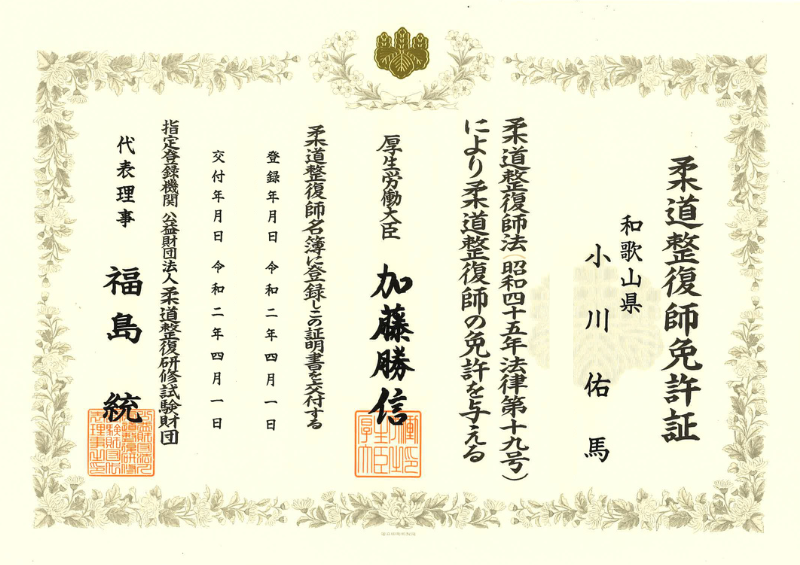 柔道整復師免許証
和歌山県
小川佑馬
柔道整復師法(昭和四十五年法律第十九号)
により柔道整復師の免許を与える
厚生労働大臣 加藤勝信
柔道整復師名簿に登録しこの証明書を交付する
登録年月日 令和二年四月一日
交付年月日 令和二年四月一日
指定登録機関 公益財団法人柔道整復研修試験財団
代表理事 福島統